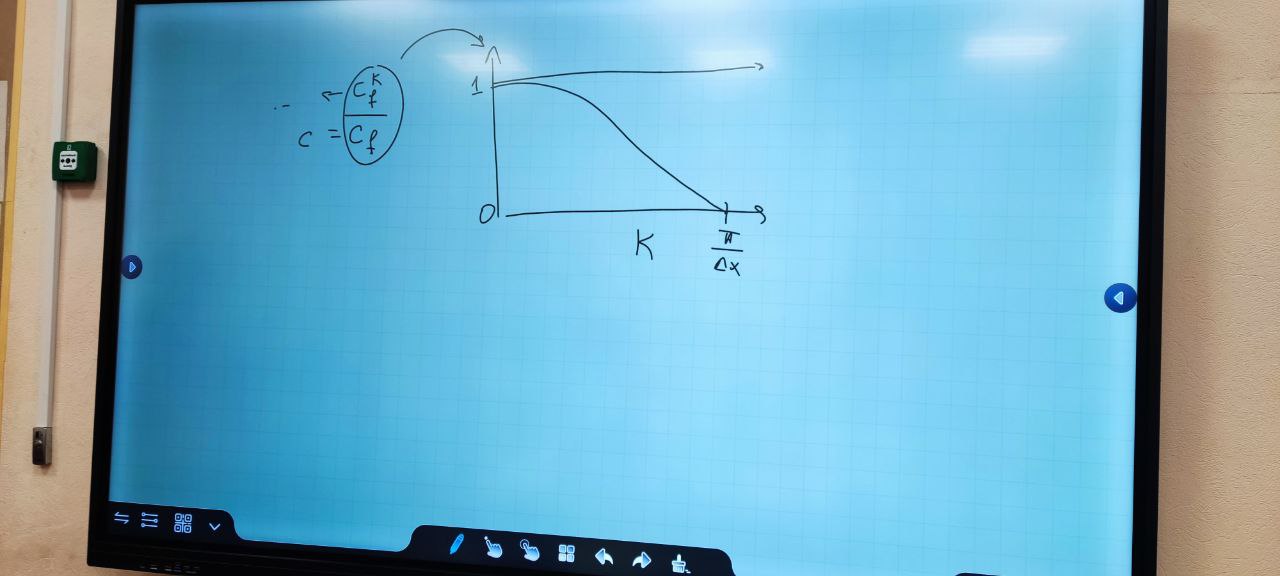 C_f^K
C = C_f
1
0
K
π
Δx